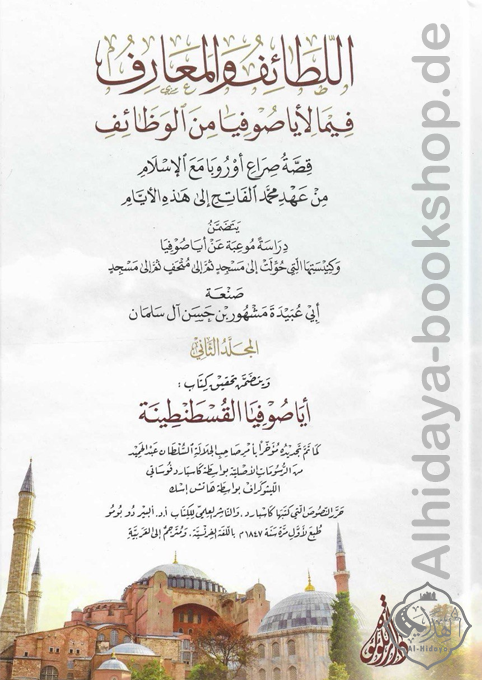 اللطائف والمعارف
فيما لأيا صوفيا من الوظائف
قصة صراع أوروبا مع الإسلام
من عهد محمد الفاتح إلى هذه الأيام
يتضمن
دراسة موعبة عن أيا صوفيا
وكنيستها التي حولت إلى مسجد ثم إلى متحف ثم إلى مسجد
صنعة
أبي عبيدة مشهور بن حسن آل سلمان
المجلد الثاني
ويتضمن تحقيق كتاب :
أيا صوفيا القسطنطينة
كما تم تجديده مؤخرا بأمر صاحب الجلالة السلطان عبد المجيد
من الرسومات الأصلية بواسطة كاسبارد فوساتي
الليتوكراف بواسطة هانس إسك
حرر النصوص التي كتبها كاسبارد، والناشر العلمي للكتاب أ.د. ألبير دو بومو
طبع لأول مرة سنة ١٨٤٧م باللغة الفرنسية، ومترجم إلى العربية
دار اللؤلؤة
الهداية
Al-Hidaya
Alhidaya-bookshop.de